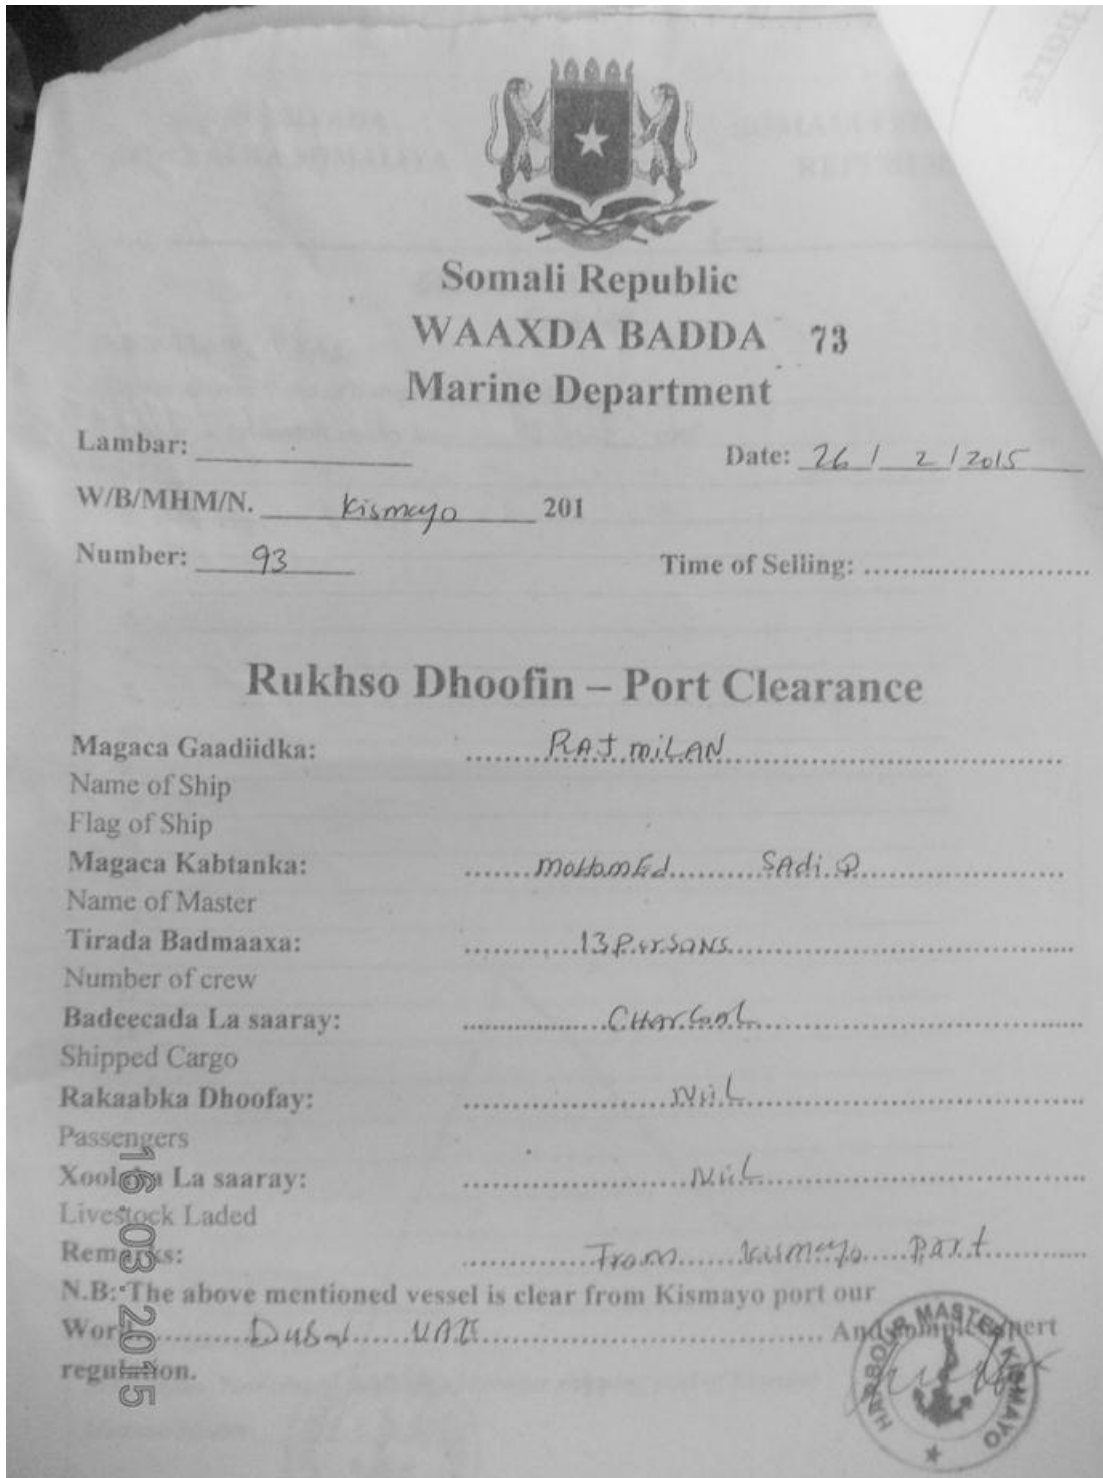 Somali Republic
WAAXDA BADDA 73
Marine Department
Lambar: 
Date: 26 / 2 / 2015
W/B/MHM/N. Kismayo 201
Number: 93
Time of Selling: ..............................
Rukhso Dhoofin – Port Clearance
Magaca Gaadiidka: RAJ miLAN
Name of Ship
Flag of Ship
Magaca Kabtanka: mohamEd SAdiQ
Name of Master
Tirada Badmaaxa: 13 PersoNs
Number of crew
Badeecada La saaray: CHarCoaL
Shipped Cargo
Rakaabka Dhoofay: NiiL
Passengers
La saaray: NiiL
Livestock Laded
Remarks: From Kismayo Port
N.B: The above mentioned vessel is clear from Kismayo port our
Dubai UAE And pert
regulation.
HARBOUR MASTER KISMAYO
16 03 2015